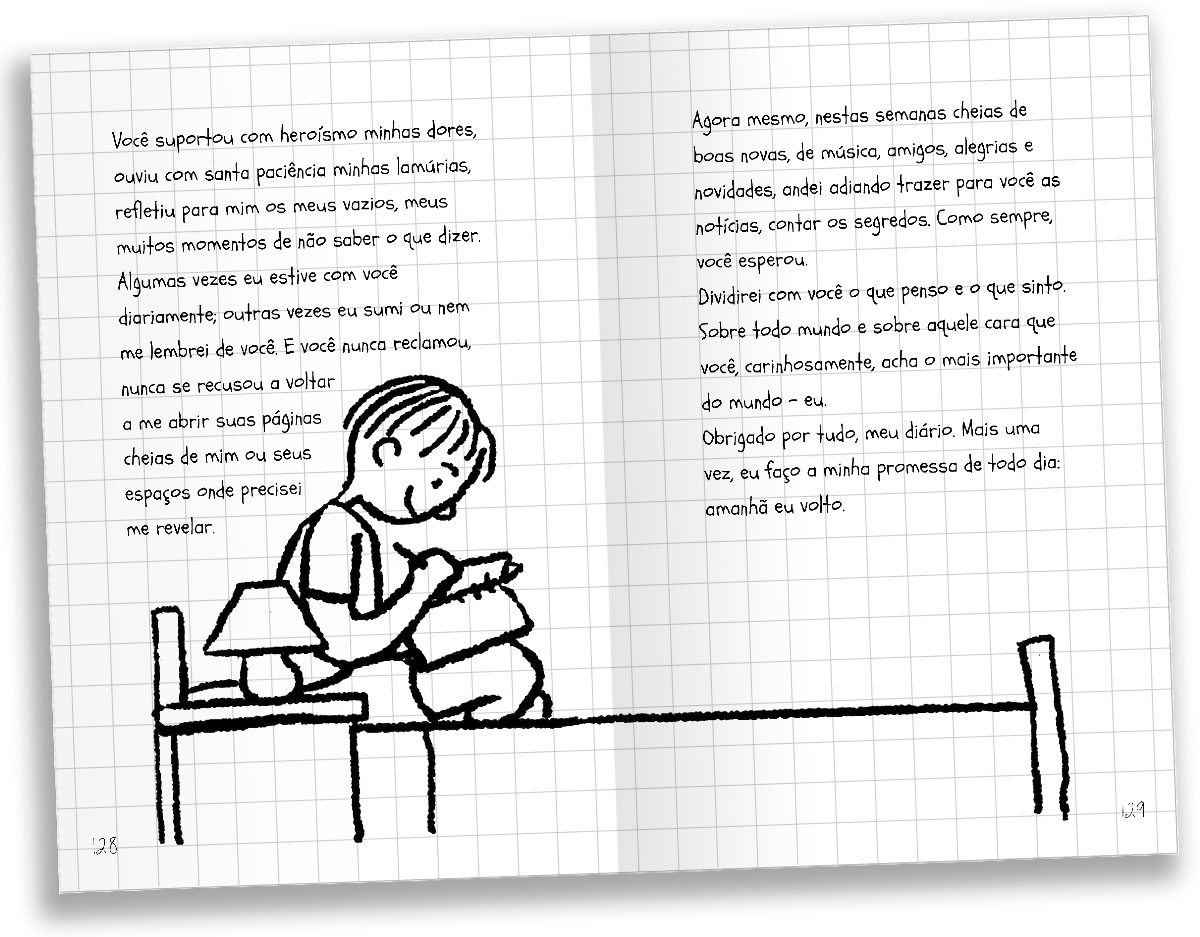 Você suportou com heroísmo minhas dores,
ouviu com santa paciência minhas lamúrias,
refletiu para mim os meus vazios, meus
muitos momentos de não saber o que dizer.
Algumas vezes eu estive com você
diariamente; outras vezes eu sumi ou nem
me lembrei de você. E você nunca reclamou,
nunca se recusou a voltar
a me abrir suas páginas
cheias de mim ou seus
espaços onde precisei
me revelar.
128
Agora mesmo, nestas semanas cheias de
boas novas, de música, amigos, alegrias e
novidades, andei adiando trazer para você as
notícias, contar os segredos. Como sempre,
você esperou.
Dividirei com você o que penso e o que sinto.
Sobre todo mundo e sobre aquele cara que
você, carinhosamente, acha o mais importante
do mundo – eu.
Obrigado por tudo, meu diário. Mais uma
vez, eu faço a minha promessa de todo dia:
amanhã eu volto.
129